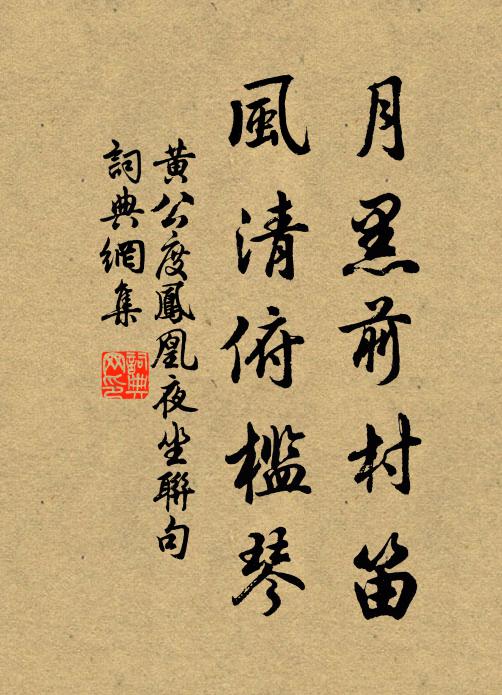 月黑前村笛
風清俯檻琴
黃公度鳳凰夜坐聯句
詞典網集
詞典網印